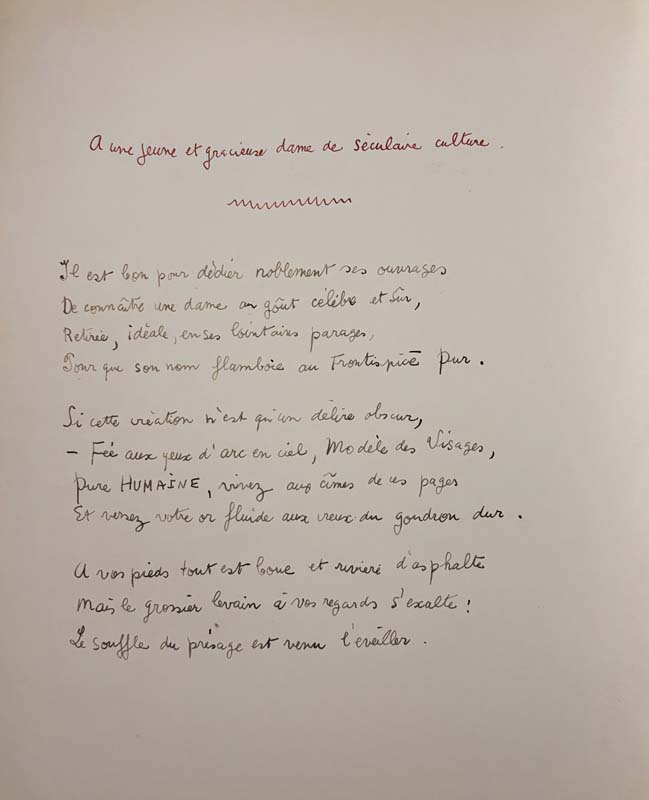 A une jeune et gracieuse dame de séculaire culture.
Il est bon pour dédier noblement ses ouvrages
De connaître une dame au goût célèbre et sûr,
Retirée, idéale, en ses lointains parages,
Pour que son nom flamboie au Frontispice pur.
Si cette création n'est qu'un délire obscur,
– Fée aux yeux d'arc en ciel, Modèle des Visages,
Pure HUMAINE, vivez aux âmes de ces pages
Et versez votre or fluide aux creux du goudron dur.
A vos pieds tout est boue et rivière d'asphalte
Mais le grossier levain à vos regards s'exalte !
Le souffle du présage est venu l'éveiller.